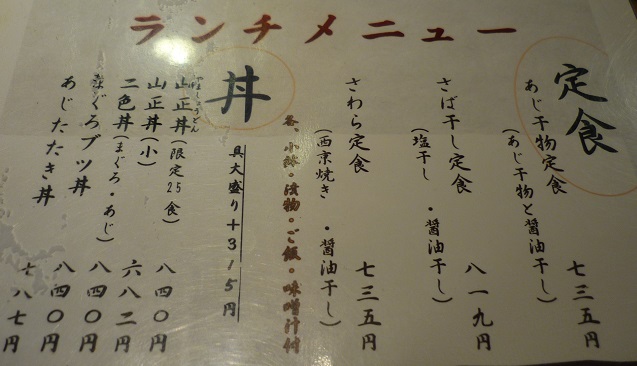 ランチメニュー
定食
あじ干物定食
(あじ干物と醤油干し)
七三五円
さば干し定食
(塩干し・醤油干し)
八一九円
さわら定食
(西京焼き・醤油干し)
七三五円
各、小鉢・漬物・ご飯・味噌汁付
丼
具大盛り+315円
山正丼(限定25食)
八四〇円
山正丼(小)
六八二円
二色丼(まぐろ・あじ)
八四〇円
まぐろブツ丼
八四〇円
あじたたき丼
七八七円